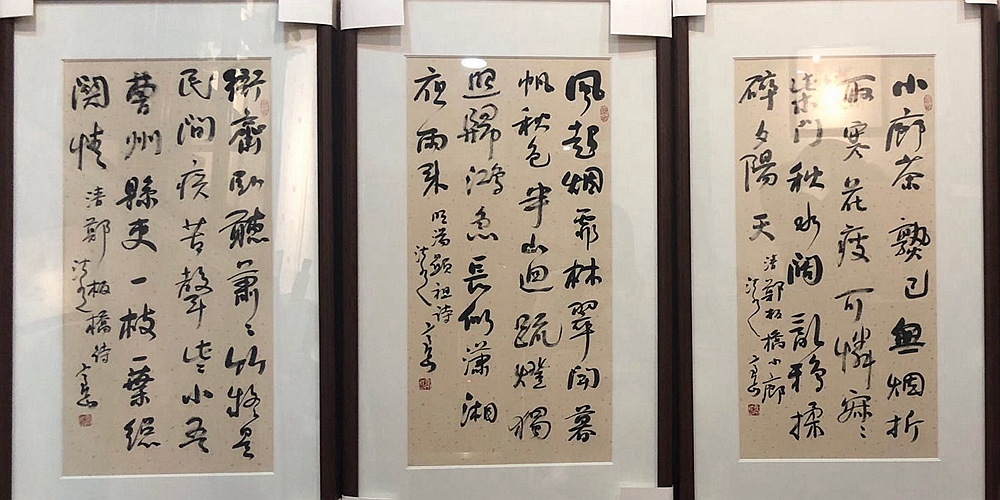 衙齋臥聽蕭〻竹疑是
民間疾苦聲些小吾
曹州縣吏一枝一葉總
關情
清鄭板橋詩
風起烟霏林翠開暮
帆秋色半山迴疏燈獨
照歸鴻急長似瀟湘
夜雨來
明湯顯祖詩
小廊茶熟已無烟折
取寒花瘦可憐寂〻
柴門秋水闊亂鴉揉
碎夕陽天
清鄭板橋小廊